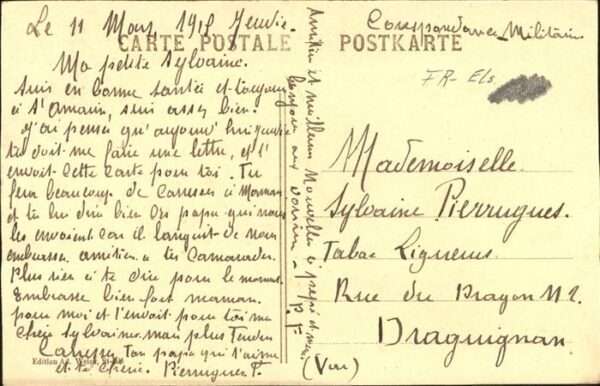 Le 11 Mars 1918 Jeudi.
CARTE POSTALE
Ma petite Sylvaine.
Suis en bonne santée et toujours
à St Amarin, suis assez bien.
J'ai pensé qu'aujourd'hui
tu doit me faire une lettre, et t'
envoit cette carte pour toi. Tu
fera beaucoup de caresses à Maman
et tu lui dira bien papa qui
les envoient car il languit de vous
embrasser. amitiés a tes Camarades
Plus rien a te dire pour le moment.
Embrasse bien fort maman
pour moi et t'envoit pour toi ma
Chère Sylvaine mes plus Tendres
Caresses Ton papa qui t'aime
et te chérie. Pierrugues F.
Edition Ad.
Amitiés et meilleures Nouvelles à pépé et mémé
bonjour aux voisins - P. F
POSTKARTE
Correspondance Militaire
FR- Els
Mademoiselle
Sylvaine Pierrugues.
Tabac Ligneus
Rue du Dragon N 2.
Draguignan
(Var)